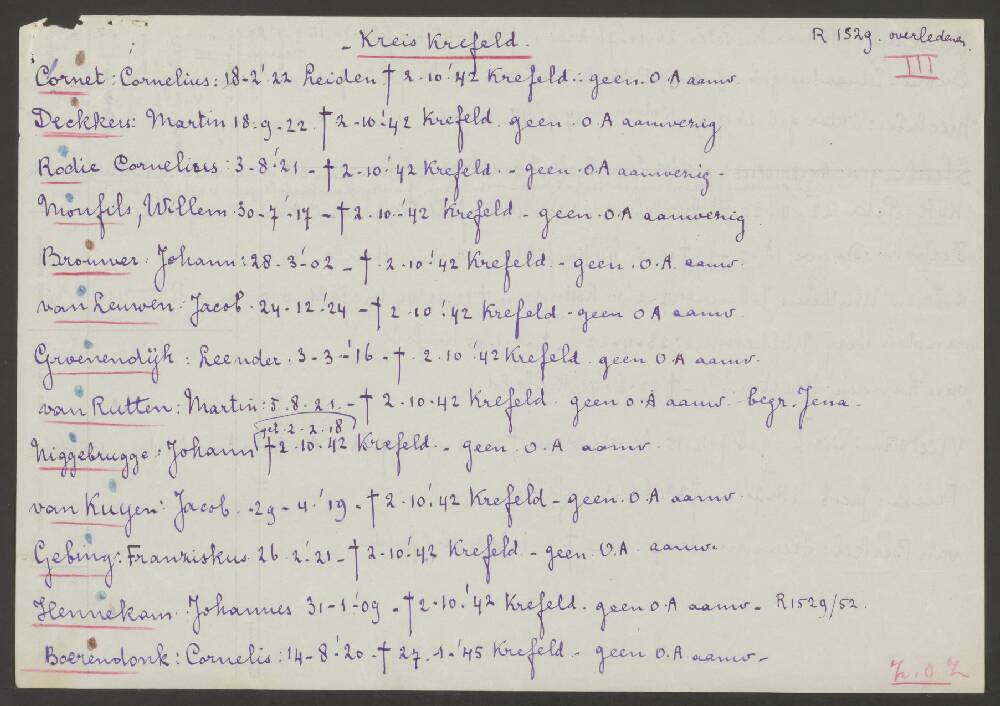 - Kreis Krefeld.
R 1529. overledenen.
III
Cornet: Cornelius: 18-2-'22 Leiden † 2-10-'42 Krefeld.- geen O.A aanw.
Deckkers: Martin 18-9-22. † 2-10-'42 Krefeld. geen O.A aanwezig
Rodie Cornelius: 3-8-'21 - † 2-10-'42 Krefeld. - geen O.A aanwezig -
Monfils, Willem 30-7-'17 - † 2-10-'42 Krefeld - geen O.A aanwezig
Brouwer. Johann: 28-3-'02 - † 2-10-'42 Krefeld - geen O.A. aanw.
van Leuwen: Jacob 24-12-'24 - † 2-10-'42 Krefeld - geen O A aanw.
Groenendijk: Leender. 3-3-'16 - † 2-10-'42 Krefeld. geen O.A aanw.
van Rutten: Martin: 5.8.21. - † 2-10-42 Krefeld geen O.A aanw. begr. Jena -
get. 2-2-18
Niggebrugge: Johann † 2-10-42 Krefeld. - geen O.A aanw.
van Kuyen: Jacob. -29-4-'19 - † 2-10-'42 Krefeld - geen O.A aanw.
Gebing: Franziskus 26-2-'21 - † 2-10-'42 Krefeld - geen O.A. aanw.
Hennekam. Johannes 31-1-'09 - † 2-10-'42 Krefeld. geen O.A aanw - R1529/52.
Boerendonk: Cornelis: 14-8-'20 - † 27-1-'45 Krefeld - geen O.A aanw -
Z.O.Z